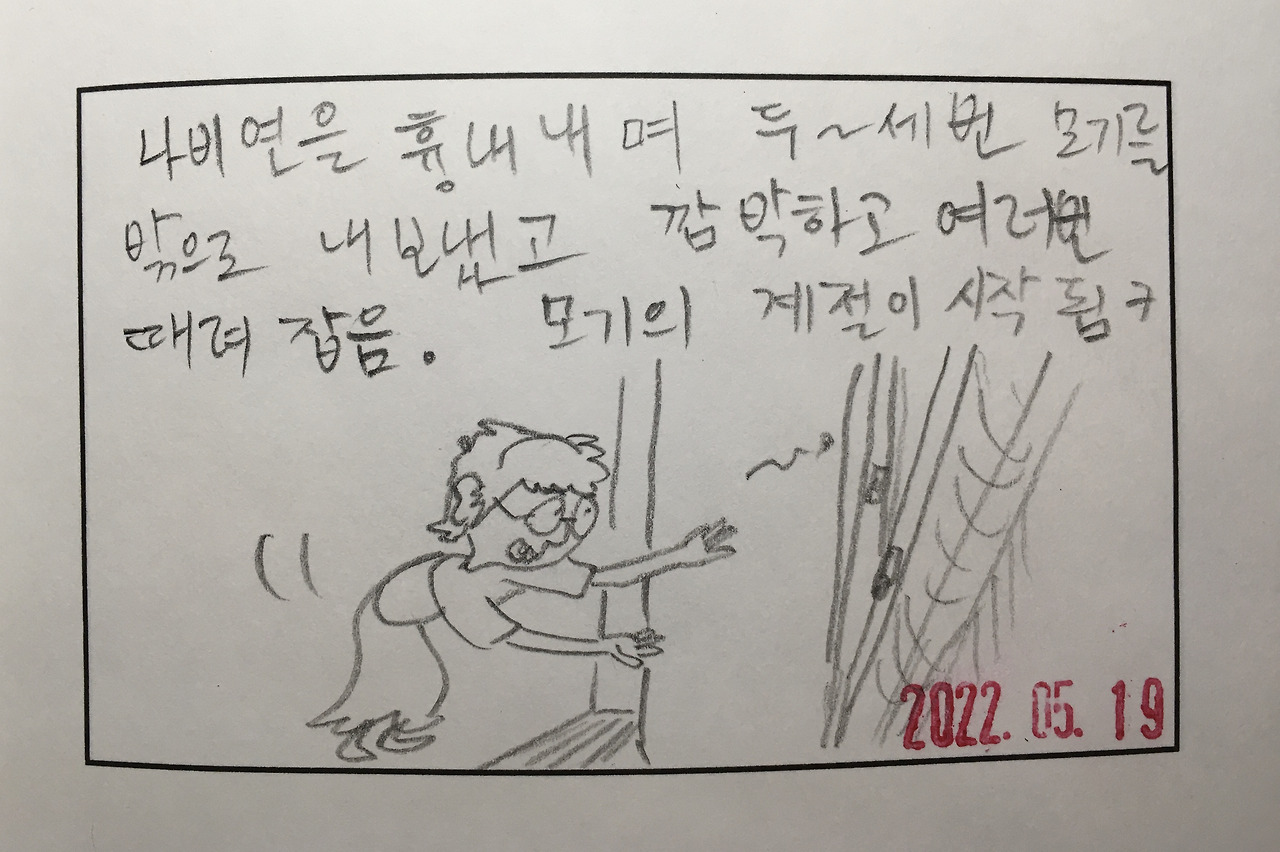 나비연을 흉내내며 두~세번 모기를
밖으로 내보냈고 깜박하고 여러번
때려 잡음. 모기의 계절이 시작 됨ㅋ
2022. 05. 19